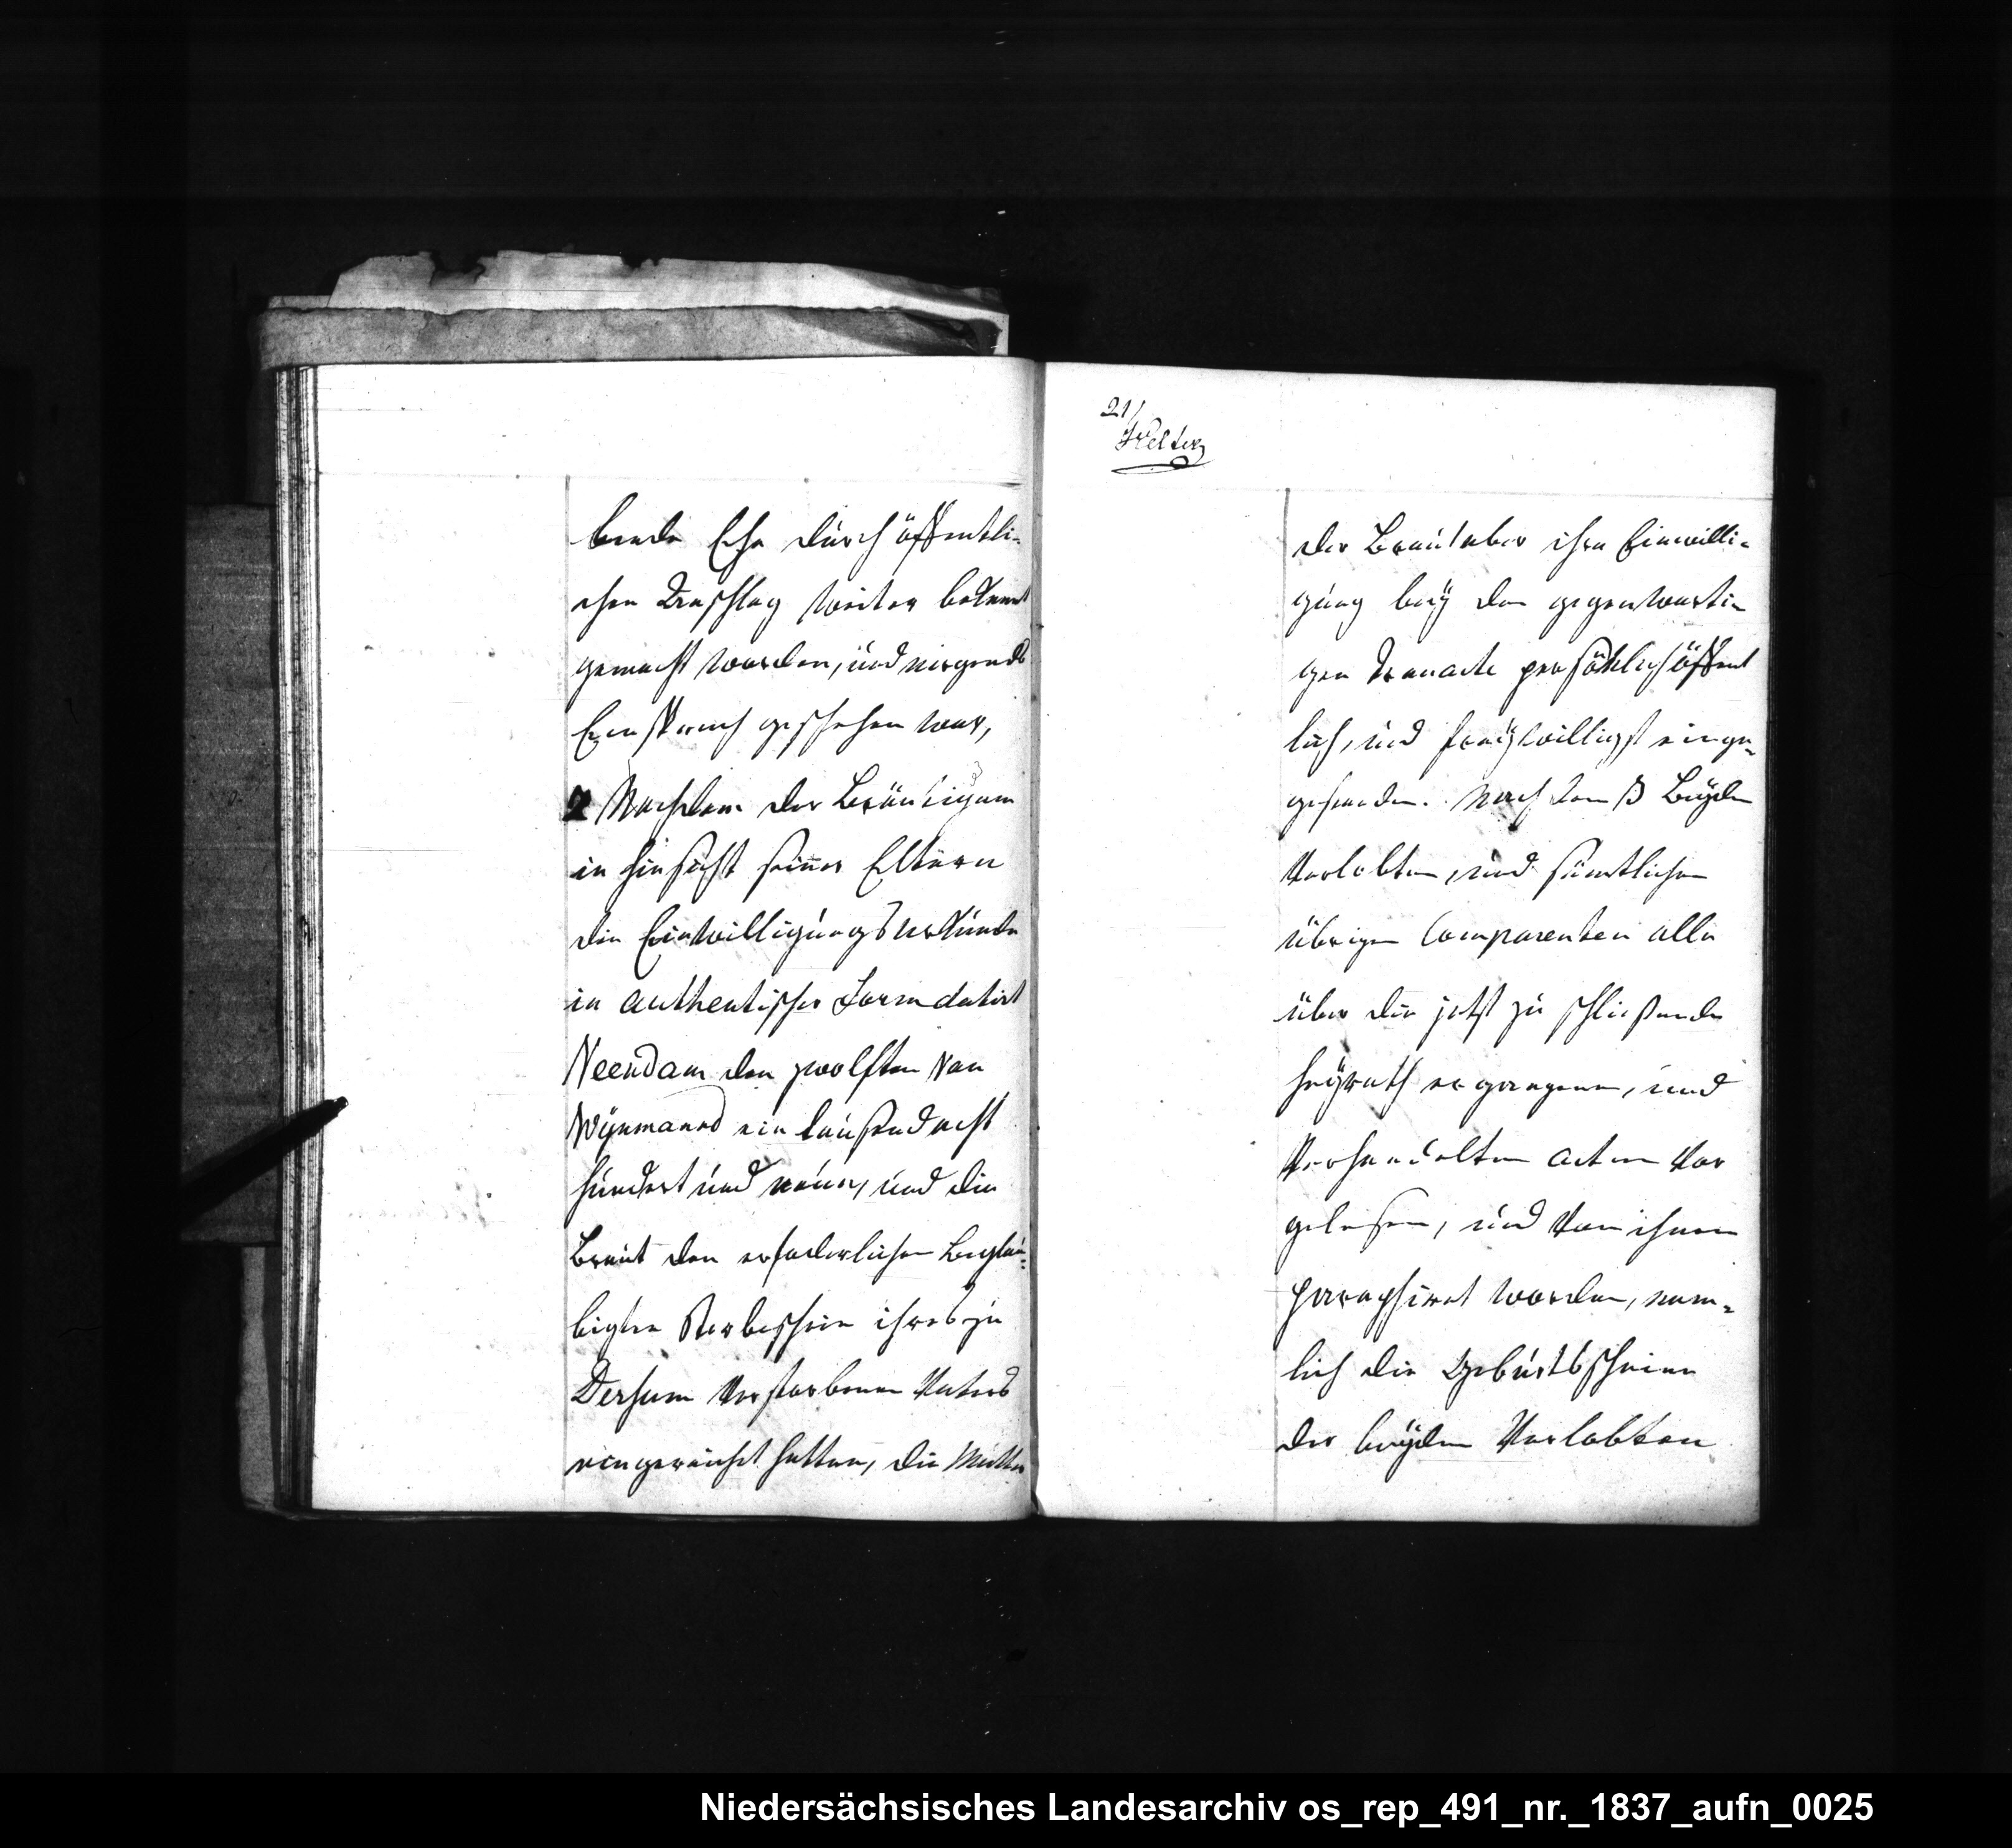 bende Ehe durch öffentli-
chen Anschlag weiter bekannt
gemacht worden, und nirgends
Einspruch geschehen war,
Nachdem der Bräutigam
in hinsicht seiner Eltern
die Einwilligungs Urkunde
in authentischer Form datirt
Veendam den zwolften van
Wynmaand ein tausend acht
hundert und neun, und die
Braut den erfoderlichen beglau-
bigten Sterbeschein ihres zu
Dersum verstorbenen Vaters
eingereicht hatten, die Mutter
21/
der Braut aber ihre Einwilli-
gung bey dem gegenwarti-
gen Trauacte persöhnlich öffent
lich, und freywilligst einge-
gestanden. Nachdem Beyden
Verlobten, und sämtlichen
übrigen Comparenten alle
über die jetzt zu schließende
heyrath ergangene, und
Verhandelten acten vor
gelesen, und von ihnen
paraphiret worden, nem-
lich die Geburtsscheine
der beyden Verlobten
Niedersächsisches Landesarchiv os_rep_491_nr._1837_aufn_0025